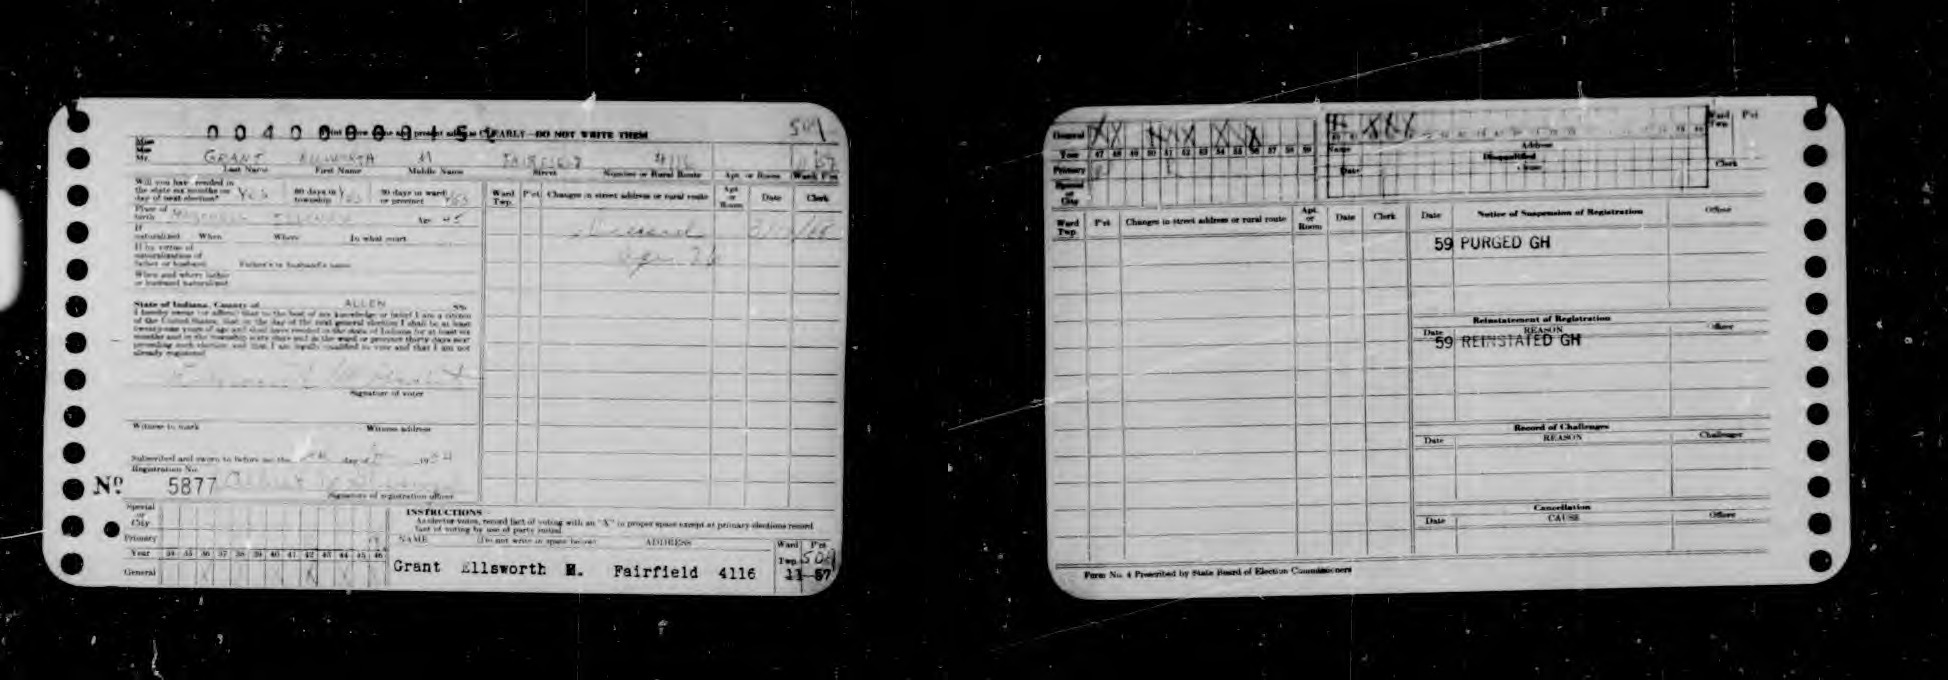 0040000015
CLEARLY—DO NOT WRITE THEM
504
Miss
Mrs
Mr.
GRANT ELLSWORTH M FAIRFIELD 4116 11 57
Last Name First Name Middle Name Street Number or Rural Route Apt. or Room Ward Pct
Will you have resided in
the state six months on
day of next election? YES 60 days in township YES 30 days in ward or precinct YES
Ward Twp. P'ct Changes in street address or rural route Apt. or Room Date Clerk
Place of birth Age 45
Deceased
age 76
If naturalized When Where In what court
If by virtue of
naturalization of
father or husband Father's or husband's name
When and where father
or husband naturalized
State of Indiana, County of ALLEN SS:
I hereby swear (or affirm) that to the best of my knowledge or belief I am a citizen
of the United States, that on the day of the next general election I shall be at least
twenty-one years of age and shall have resided in the state of Indiana for at least six
months and in the township sixty days and in the ward or precinct thirty days next
preceding such election and that I am legally qualified to vote and that I am not
already registered.
Signature of voter
Witness to mark Witness address
Subscribed and sworn to before me this day of 1934
Registration No.
No. 5877
Signature of registration officer
Special or City
Primary
Year 34 35 36 37 38 39 40 41 42 43 44 45 46
General X X X
INSTRUCTIONS
As elector votes, record fact of voting with an "X" in proper space except at primary elections record
fact of voting by use of party initial.
NAME (Do not write in space below) ADDRESS Ward Twp. P'ct
504
Grant Ellsworth M. Fairfield 4116 11-57
General X X X X X X X X
Year 47 48 49 50 51 52 53 54 55 56 57 58 59
Primary
Special or City
XXX
Ward Twp. P'ct
Name Address
Disqualified
Date Clerk
Ward Twp. P'ct Changes in street address or rural route Apt. or Room Date Clerk
Date Notice of Suspension of Registration Officer
59 PURGED GH
Reinstatement of Registration
Date REASON Officer
59 REINSTATED GH
Record of Challenges
Date REASON Challenger
Cancellation
Date CAUSE Officer
Form No. 4 Prescribed by State Board of Election Commissioners